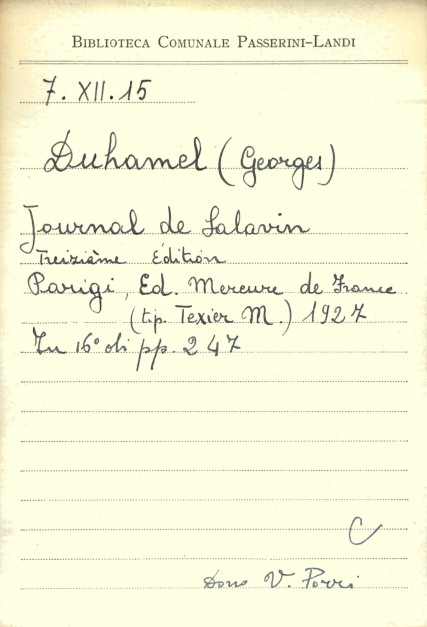 BIBLIOTECA COMUNALE PASSERINI-LANDI
7. XII. 15
Duhamel (Georges)
Journal de Salavin
Treizième Édition
Parigi, Ed. Mercure de France
(tip. Texier M.) 1927
In 16° di pp. 247
C
Dono V. Porri